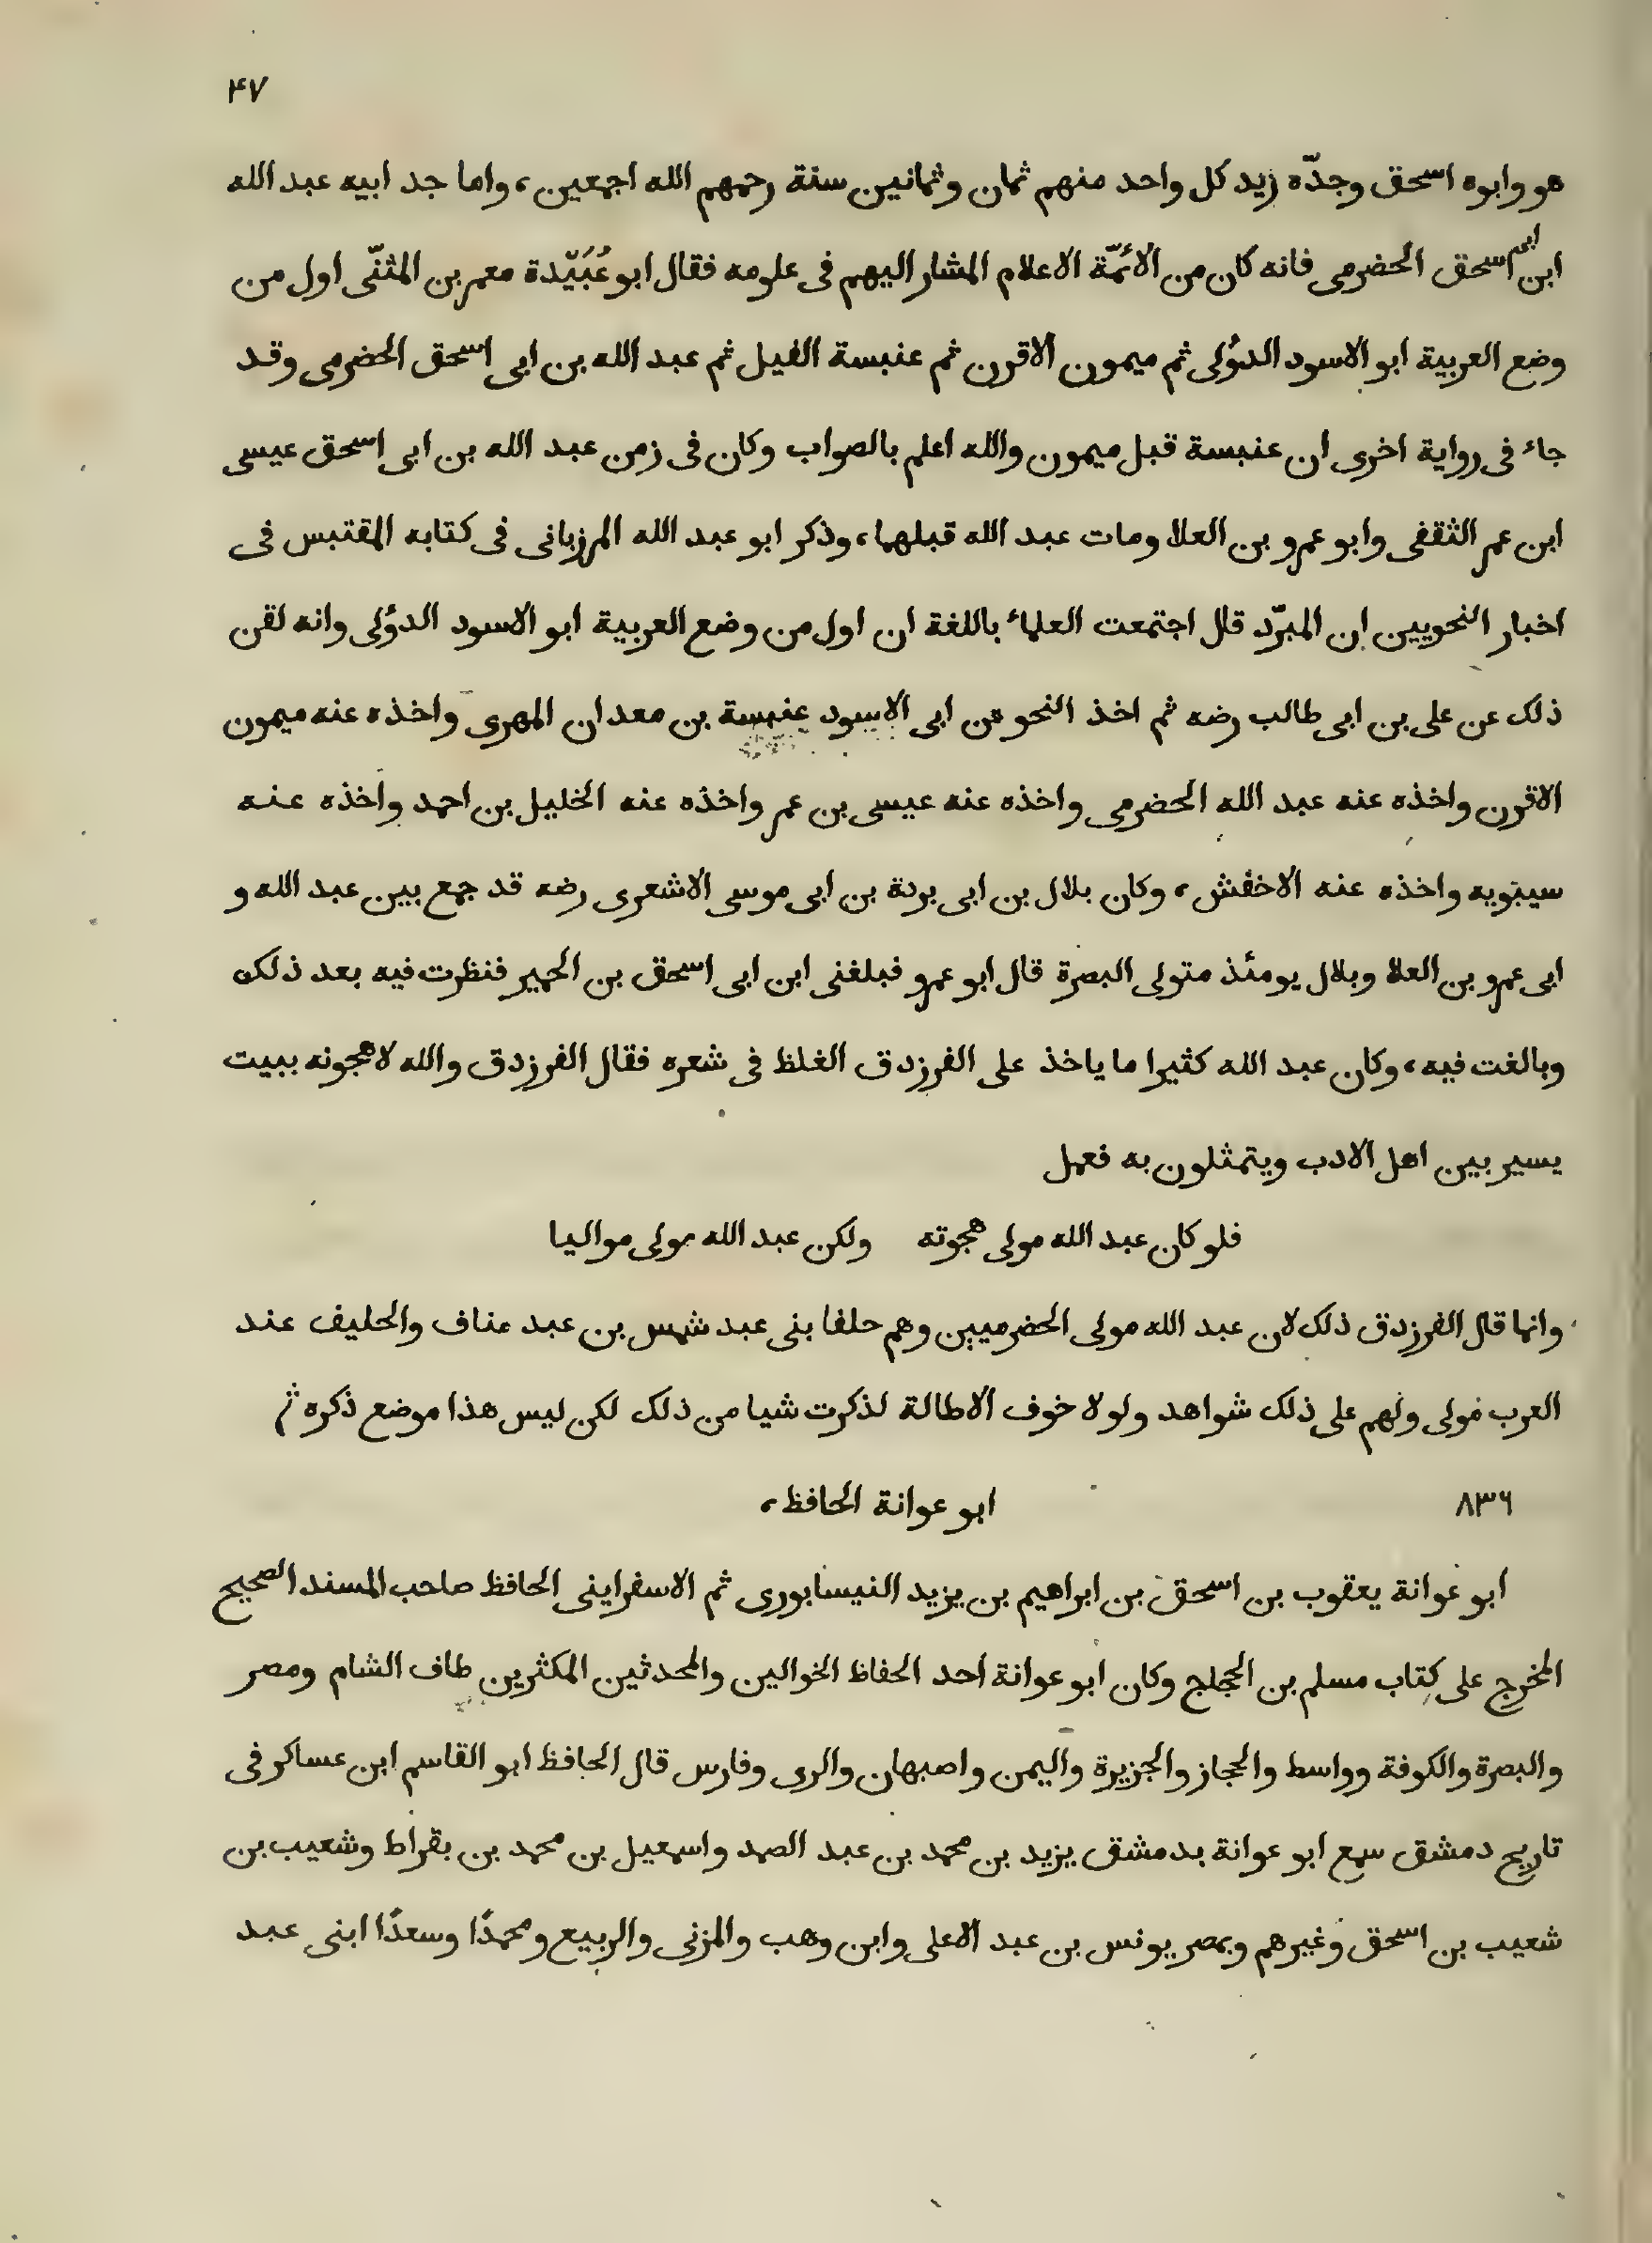 ۴۷
هو وابوه اسحق وجدّه زيد كل واحد منهم ثمان وثمانين سنة رحمهم الله اجمعين، واما جد ابيه عبد الله
ابن ابى اسحق الحضرمى فانه كان من الائمّة الاعلام المشار اليهم فى علومه فقال ابو عُبَيّدة معمر بن المثنّى اول من
وضع العربية ابو الاسود الدوُلى ثم ميمون الاقرن ثم عنبسة الفيل ثم عبد الله بن ابى اسحق الحضرمى وقد
جاء فى رواية اخرى ان عنبسة قبل ميمون والله اعلم بالصواب وكان فى زمن عبد الله بن ابى اسحق عيسى
ابن عمر الثقفى وابو عمرو بن العلا ومات عبد الله قبلهما، وذكر ابو عبد الله المرزبانى فى كتابه المقتبس فى
اخبار النحويين ان المبرّد قال اجتمعت العلماء باللغة ان اول من وضع العربية ابو الاسود الدوُلى وانه لقن
ذلك عن على بن ابى طالب رضه ثم اخذ النحو عن ابى الاسود عنبسة بن معدان المهرى واخذه عنه ميمون
الاقرن واخذه عنه عبد الله الحضرمى واخذه عنه عيسى بن عمر واخذه عنه الخليل بن احمد واخذه عنه
سيبويه واخذه عنه الاخفش، وكان بلال بن ابى بردة بن ابى موسى الاشعرى رضه قد جمع بين عبد الله و
ابى عمرو بن العلا وبلال يومئذ متولى البصرة قال ابو عمرو فبلغنى ابن ابى اسحق بن الحمير فنظرت فيه بعد ذلك
وبالغت فيه، وكان عبد الله كثيرا ما ياخذ على الفرزدق الغلظ فى شعره فقال الفرزدق والله لاهجونه ببيت
يسير بين اهل الادب ويتمثلون به فعمل
فلو كان عبد الله مولى هجوته ولكن عبد الله مولى مواليا
وانما قال الفرزدق ذلك لان عبد الله مولى الحضرميين وهم حلفا بنى عبد شمس بن عبد مناف والحليف عند
العرب مولى ولهم على ذلك شواهد ولولا خوف الاطالة لذكرت شيا من ذلك لكن ليس هذا موضع ذكره ثم
٨٣٦ ابو عوانة الحافظ،
ابو عوانة يعقوب بن اسحق بن ابراهيم بن يزيد النيسابورى ثم الاسفراينى الحافظ صاحب المسند الصحيح
المخرج على كتاب مسلم بن الحجاج وكان ابو عوانة احد الحفاظ الخوالين والمحدثين المكثرين طاف الشام ومصر
والبصرة والكوفة وواسط والحجاز والجزيرة واليمن واصبهان والرى وفارس قال الحافظ ابو القاسم ابن عساكر فى
تاريح دمشق سمع ابو عوانة بدمشق يزيد بن محمد بن عبد الصمد واسمعيل بن محمد بن بقراط وشعيب بن
شعيب بن اسحق وغيرهم وبمصر يونس بن عبد الاعلى وابن وهب والمزنى والربيع ومحمدًا وسعدًا ابنى عبد